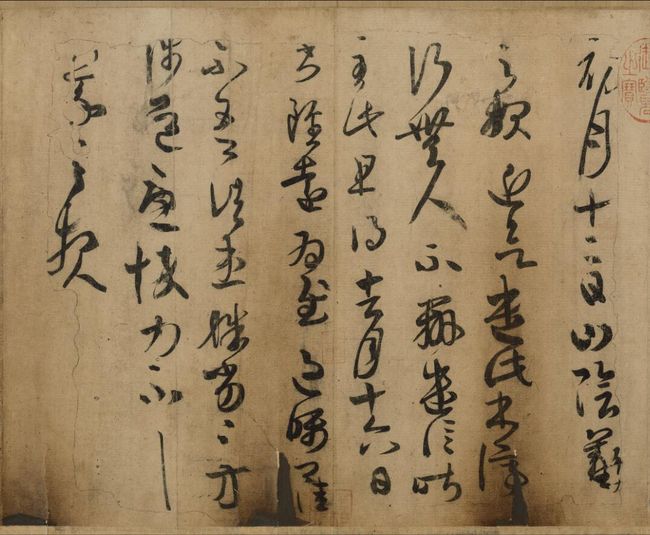 初月十二日山陰羲
之報近欲遣此書停
行無人不辦遣信昨
至此且得去月十六日
書雖遠為慰過囑卿佳
不吾諸患殊劣〻方
涉道憂悴力不
羲之報